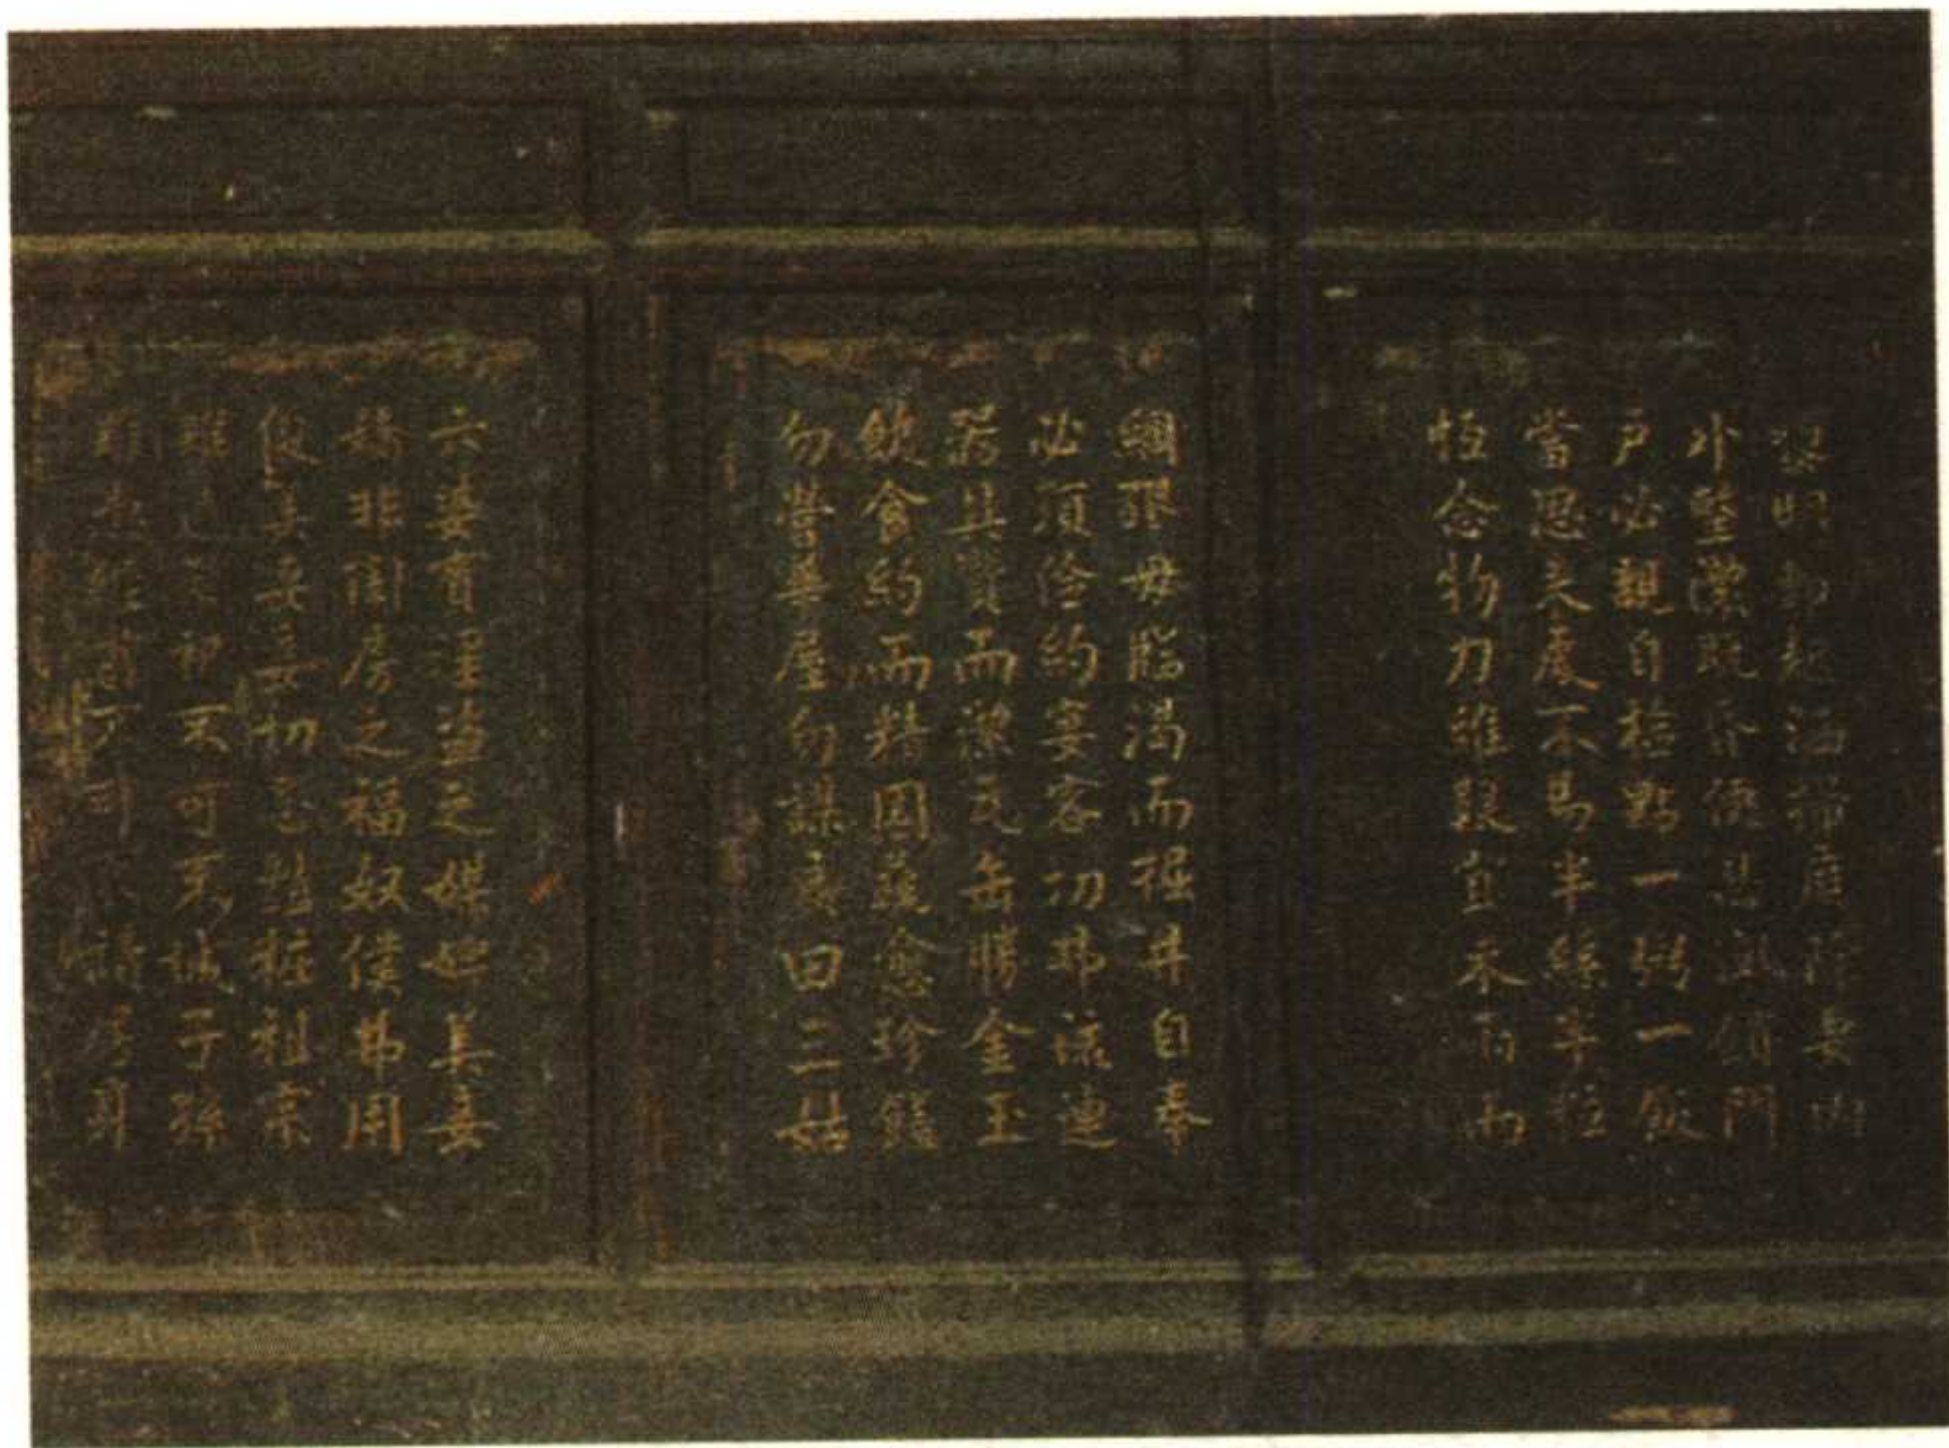 黎明即起洒掃庭除要內
外整潔既昏便息關鎖門
戶必親自檢點一粥一飯
當思來處不易半絲半粒
恆念物力維艱宜未雨而
綢繆毋臨渴而掘井自奉
必須儉約宴客切弗流連
器具質而潔瓦缶勝金玉
飲食約而精園蔬愈珍饈
勿營華屋勿謀良田三姑
六婆實淫盜之媒婢美妾
嬌非閨房之福奴僕弗用
俊美妻妾切忌艷粧祖宗
雖遠祭祀不可不誠子孫
雖愚經書不可不讀居身